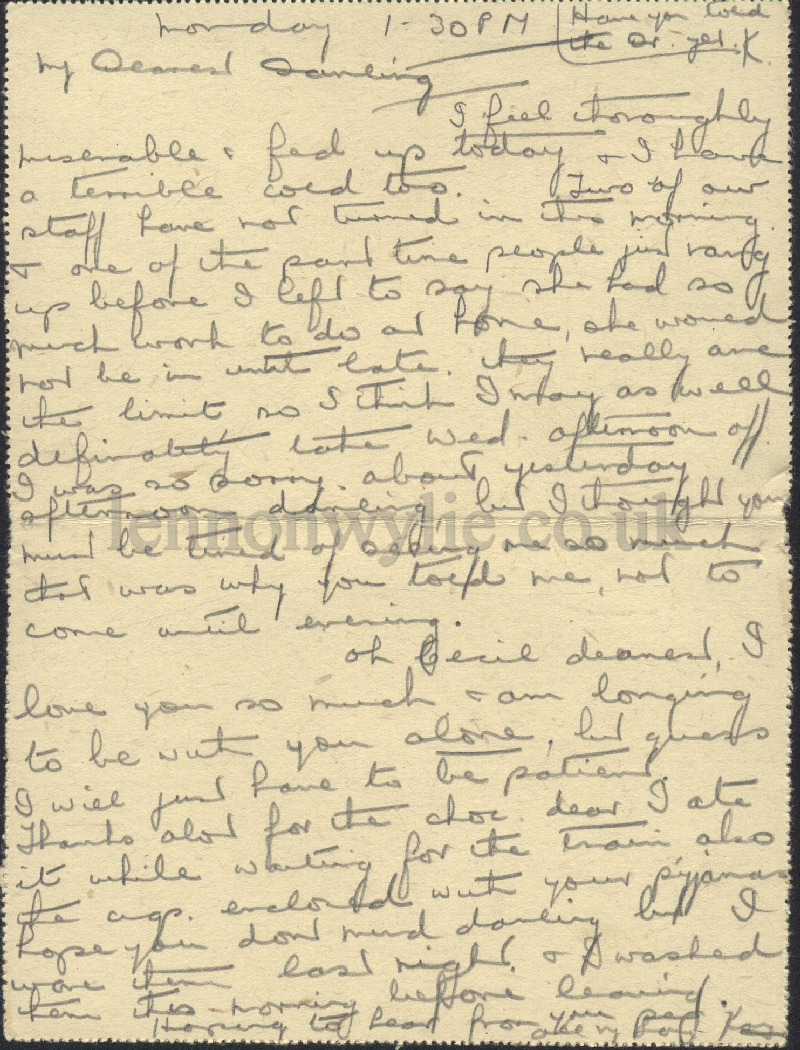 Monday 1-30PM
Have you told
the Dr. yet. K.
My Dearest Darling
I feel thoroughly
miserable & fed up today & I have
a terrible cold too. Two of our
staff have not turned in this morning
& one of the part time people just rang
up before I left to say she had so
much work to do at home, she would
not be in until late. they really are
the limit so I think I may as well
definately take Wed. afternoon off
I was so sorry about yesterday
afternoon darling, but I thought you
must be tired of seeing me so much
that was why you told me, not to
come until evening.
oh Cecil dearest, I
love you so much & am longing
to be with you alone, but guess
I will just have to be patient.
Thanks alot for the choc. dear I ate
it while waiting for the train also
the cigs. enclosed with your pyjamas
hope you dont mind darling but I
wore them last night. & I washed
them this morning before leaving.
Hoping to hear from you
lennonwylie.co.uk